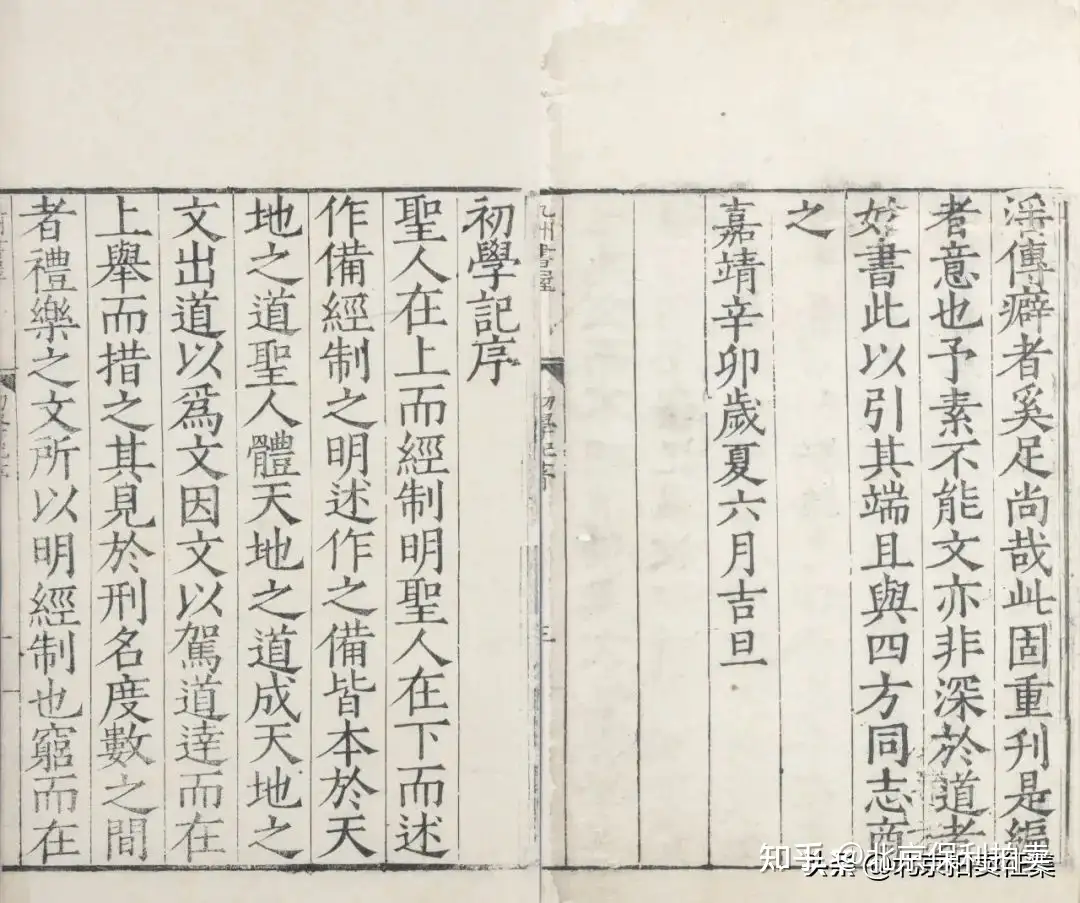 淫傳癖者奚足尚哉此固重刋是編
者意也予素不能文亦非深於道者
妙書此以引其端且與四方同志商
之
嘉靖辛卯歲夏六月吉旦
九州書屋
初學記序
三
初學記序
聖人在上而經制明聖人在下而述
作備經制之明述作之備皆本於天
地之道聖人體天地之道成天地之
文出道以爲文因文以駕道達而在
上舉而措之其見於刑名度數之間
者禮樂之文所以明經制也窮而在
知乎 @北京保利拍卖